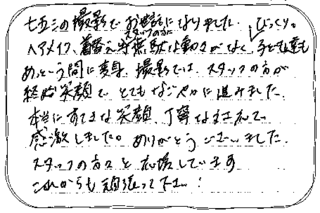 七五三の撮影でお世話になりました。
ヘアメイク、着替え スタッフの方に びっくり。
めという間に変身、撮影では、スタッフの方が
終始笑顔で、とてもなごやかに進みました。
本当にすてきな笑顔、丁寧な
感激しました。ありがとうございました。
スタッフの方々を応援しています
これからも頑張って下さい!